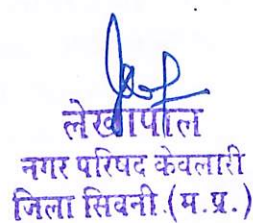 लेखापाल
नगर परिषद केवलारी
जिला सिवनी.(म.प्र.)